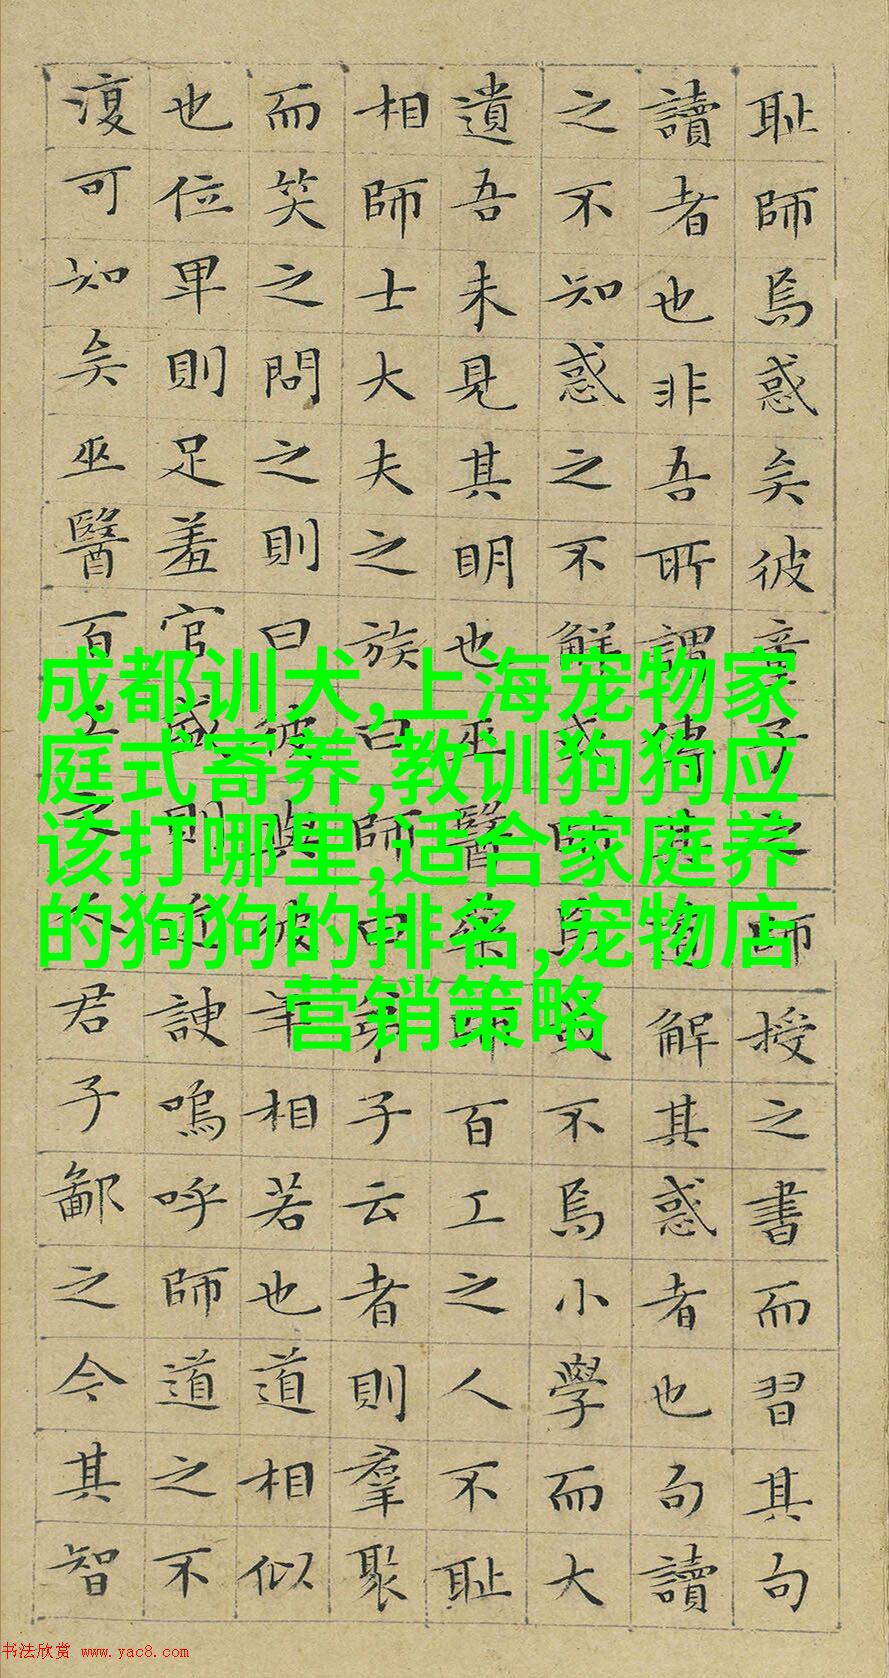 耻師焉惑矣彼童子之師授之書而習其句
讀者也非吾所謂傳其道解其惑者也句讀
之不知惑之不解或師焉或不焉小學而大
遺吾未見其明也巫醫樂師百工之人不耻
相師士大夫之族曰師曰弟子云者則羣聚
而笑之問之則曰彼與彼年相若也道相似
也位卑則足羞官盛則近諛嗚呼師道之不
復可知矣巫醫百工之人君子鄙之今其智
成都训犬,上海宠物家
庭式寄养,教训狗狗应
该打哪里,适合家庭养
的狗狗的排名,宠物店
营销策略
书法欣赏 www.yac8.com